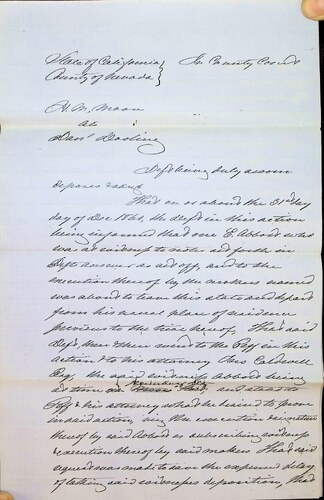 State of California } In County Court
County of Nevada }
H. M. Moore
vs :
Danl Dooling
Deft being duly sworn
deposes & says
That on or about the 31st day
day of Dec 1860, the deft in this action
being informed that one E. Abbott who
was a witness to notes set forth in
Defts answer as set off, and to the
execution thereof by the makers named
was about to leave this state and depart
from his usual place of residence
previous to the time hereof. That said
Deft, then & there went to the Plff in this
action & to his attorney Caldwell
Esq the said witness Abbott being
at time and stated to
Plff & his attorney what he desired to prove
in said action, viz the execution
thereof by said Abbott as subscribing witness
execution thereof by said makers That said
agreed was made to save the expense & delay
of taking said witnesses deposition, that